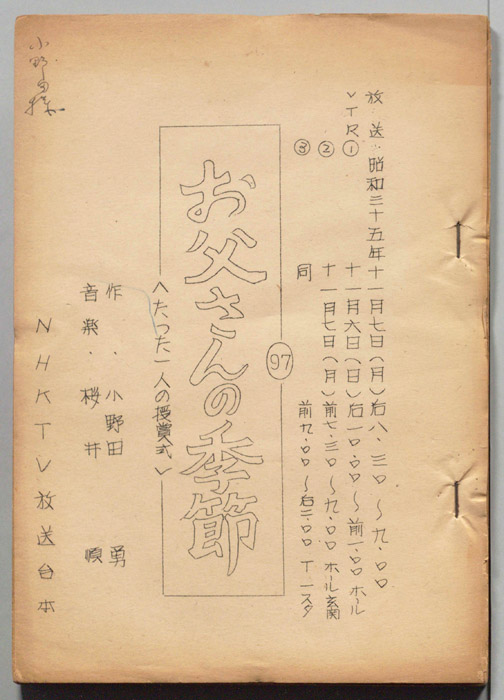 放送・昭和三十五年十一月七日(月)后八・三〇〜九・〇〇
VTR① 十一月六日(日)后一〇・〇〇〜前一・〇〇 ホール
② 十一月七日(月)前七・三〇〜九・〇〇 ホール玄関
③ 同 前九・〇〇〜后三・〇〇 T-一スタ
97
お父さんの季節
〈たった一人の授賞式〉
作・小野田 勇
音楽・桜井 順
NHKTV放送台本